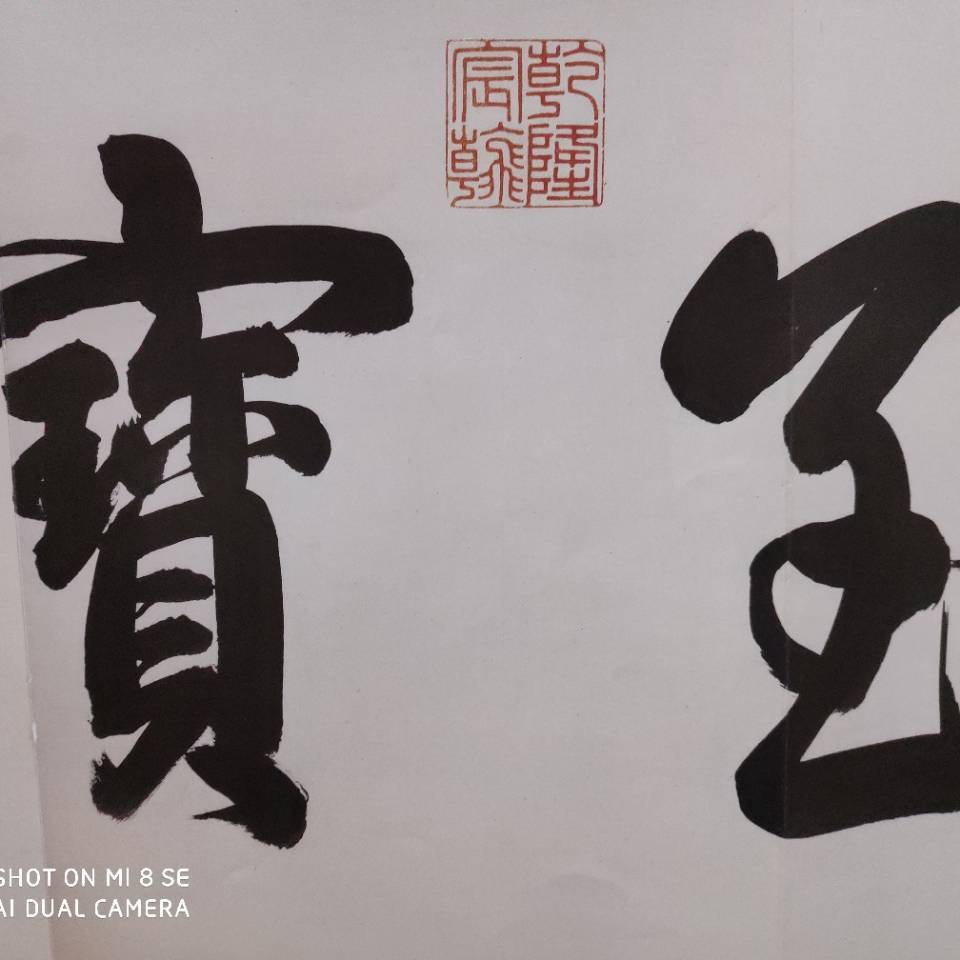 乾隆
宸翰
至寶
SHOT ON MI 8 SE
AI DUAL CAMERA